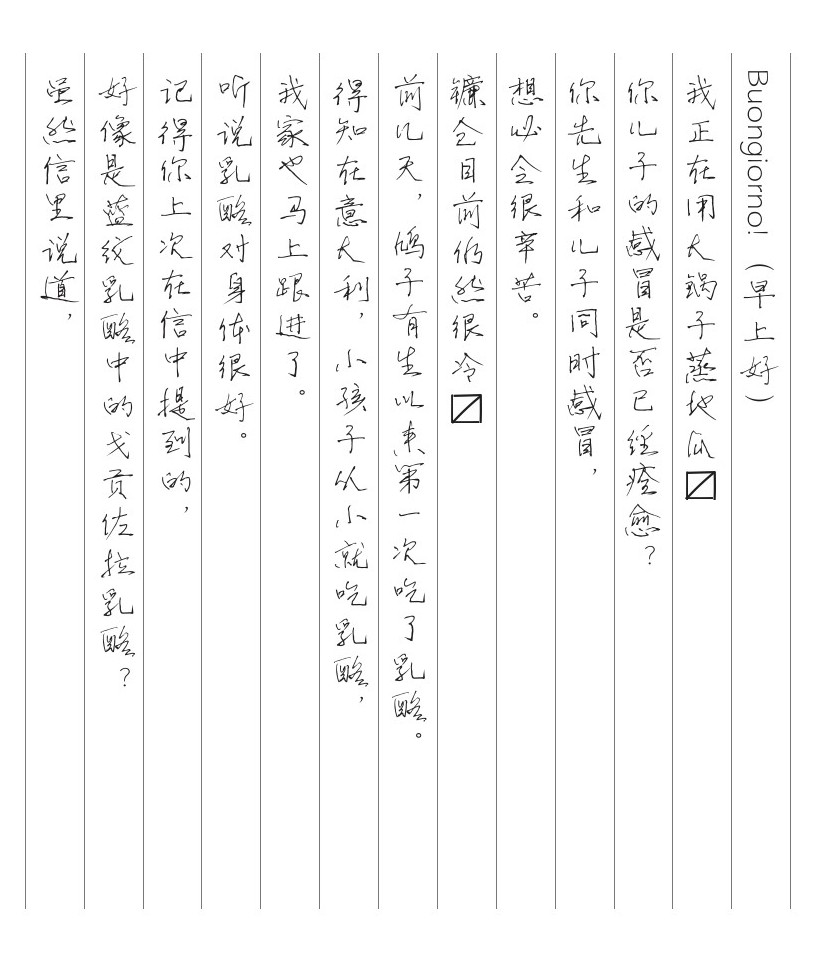 Buongiorno!（早上好）
我正在用大锅子蒸地瓜〼
你儿子的感冒是否已经痊愈？
你先生和儿子同时感冒，
想必会很辛苦。
镰仓目前仍然很冷〼
前几天，鸠子有生以来第一次吃了乳酪。
得知在意大利，小孩子从小就吃乳酪，
我家也马上跟进了。
听说乳酪对身体很好。
记得你上次在信中提到的，
好像是蓝纹乳酪中的戈贡佐拉乳酪？
虽然信里说道，